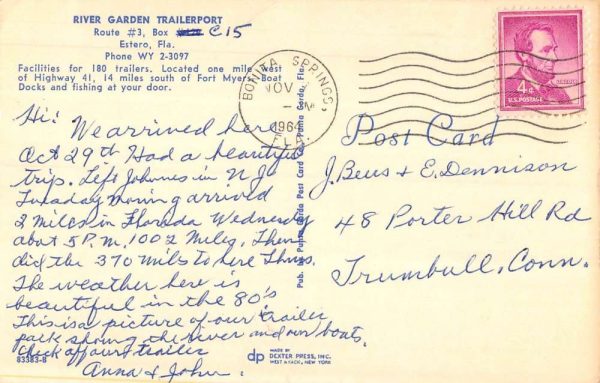 RIVER GARDEN TRAILERPORT
Route #3, Box C15
Estero, Fla.
Phone WY 2-3097
Facilities for 180 trailers. Located one mile west
of Highway 41, 14 miles south of Fort Myers. Boat
Docks and fishing at your door.
Hi! We arrived here
Oct 29th Had a beautiful
trip. Left Johnnes in N J
Tuesday morning arrived
2 miles in Florida Wednesday
about 5 P.M. 1002 Miles, Then
did the 370 mils to here Thurs.
The weather here is
beautiful in the 80's
This is a picture of our trailer
park showing the river and our boats.
Check off our trailer
Anna & John.
83383-B
Pub. by Punta Gorda Post Card Co., Punta Gorda, Fla.
dp
MADE BY
DEXTER PRESS, INC.
WEST NYACK, NEW YORK
BONITA SPRINGS,
NOV
M
1964
FLA.
4¢
U.S. POSTAGE
Post Card
J. Beus & E. Dennison
48 Porter Hill Rd
Trumbull, Conn.